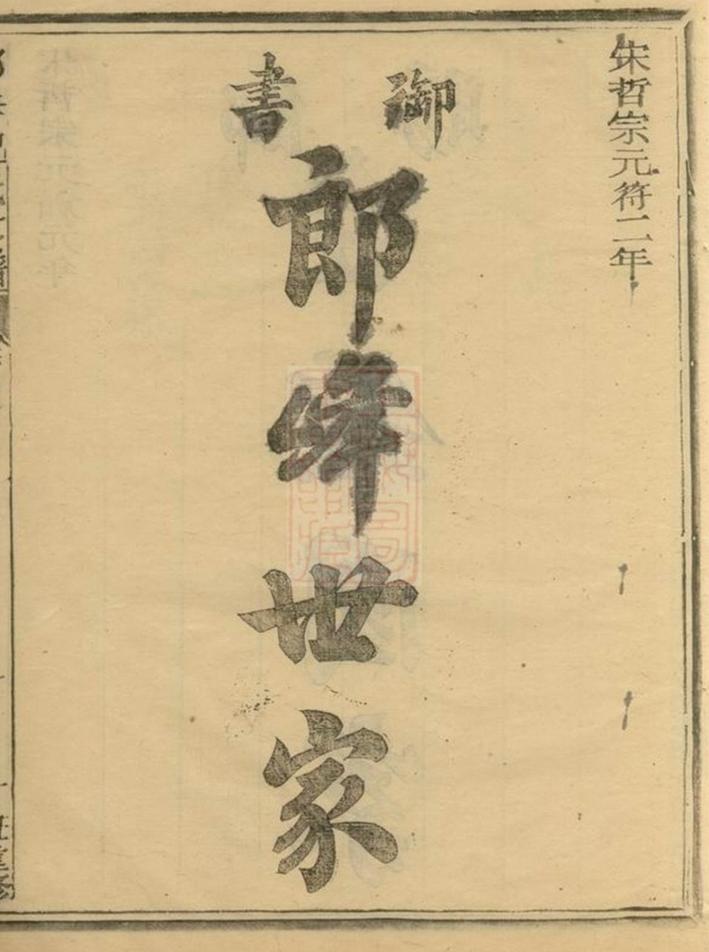 宋哲宗元符二年
御書
郎峰世家